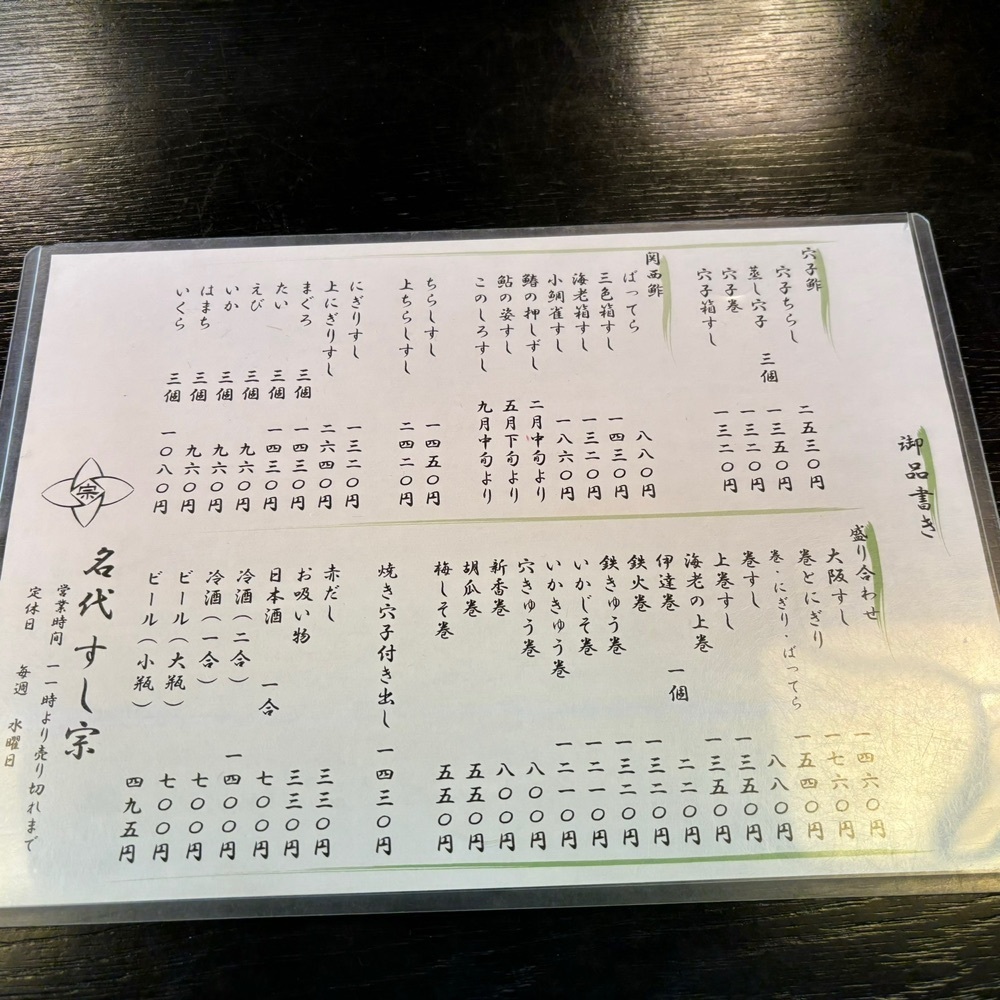 御品書き
穴子鮓
穴子ちらし 二五三〇円
蒸し穴子 三個 一三五〇円
穴子巻 一三二〇円
穴子箱すし 一三二〇円
関西鮓
ばってら 八八〇円
三色箱すし 一四三〇円
海老箱すし 一三二〇円
小鯛雀すし 一八六〇円
鰆の押しずし 二月中旬より
鮎の姿すし 五月下旬より
このしろすし 九月中旬より
ちらしすし 一四五〇円
上ちらしすし 二四二〇円
にぎりすし 一三二〇円
上にぎりすし 二六四〇円
まぐろ 三個 一四三〇円
たい 三個 一四三〇円
えび 三個 九六〇円
いか 三個 九六〇円
はまち 三個 九六〇円
いくら 三個 一〇八〇円
盛り合わせ
大阪すし 一四六〇円
巻とにぎり 一七六〇円
巻・にぎり・ばってら 一五四〇円
巻すし 八八〇円
上巻すし 一三五〇円
海老の上巻 一三五〇円
伊達巻 一個 二二〇円
鉄火巻 一三二〇円
鉄きゅう巻 一三二〇円
いかじそ巻 一二一〇円
いかきゅう巻 一二一〇円
穴きゅう巻 八〇〇円
新香巻 八〇〇円
胡瓜巻 五五〇円
梅しそ巻 五五〇円
焼き穴子付き出し 一四三〇円
赤だし 三三〇円
お吸い物 三三〇円
日本酒 一合 七〇〇円
冷酒(二合) 一四〇〇円
冷酒(一合) 七〇〇円
ビール(大瓶) 七〇〇円
ビール(小瓶) 四九五円
宗
名代すし宗
営業時間 一一時より売り切れまで
定休日 毎週 水曜日